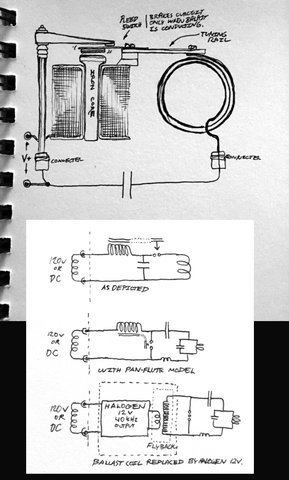 REED SWITCH
BREAKS CIRCUIT ONLY WHEN BALLAST IS CONDUCTING.
TUNING RAIL
IRON CORE
V+
CONNECTER
CONNECTER
120V OR DC
AS DEPICTED
120V OR DC
WITH PAN-FLUTE MODEL
120V OR DC
HALOGEN 12V 40KHZ OUTPUT
FLYBACK
BALLAST COIL REPLACED BY HALOGEN 12V.